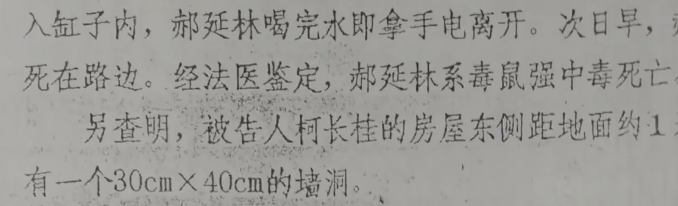 入缸子内，郝延林喝完水即拿手电离开。次日早，
死在路边。经法医鉴定，郝延林系毒鼠强中毒死亡
另查明，被告人柯长桂的房屋东侧距地面约1
有一个30cm×40cm的墙洞。